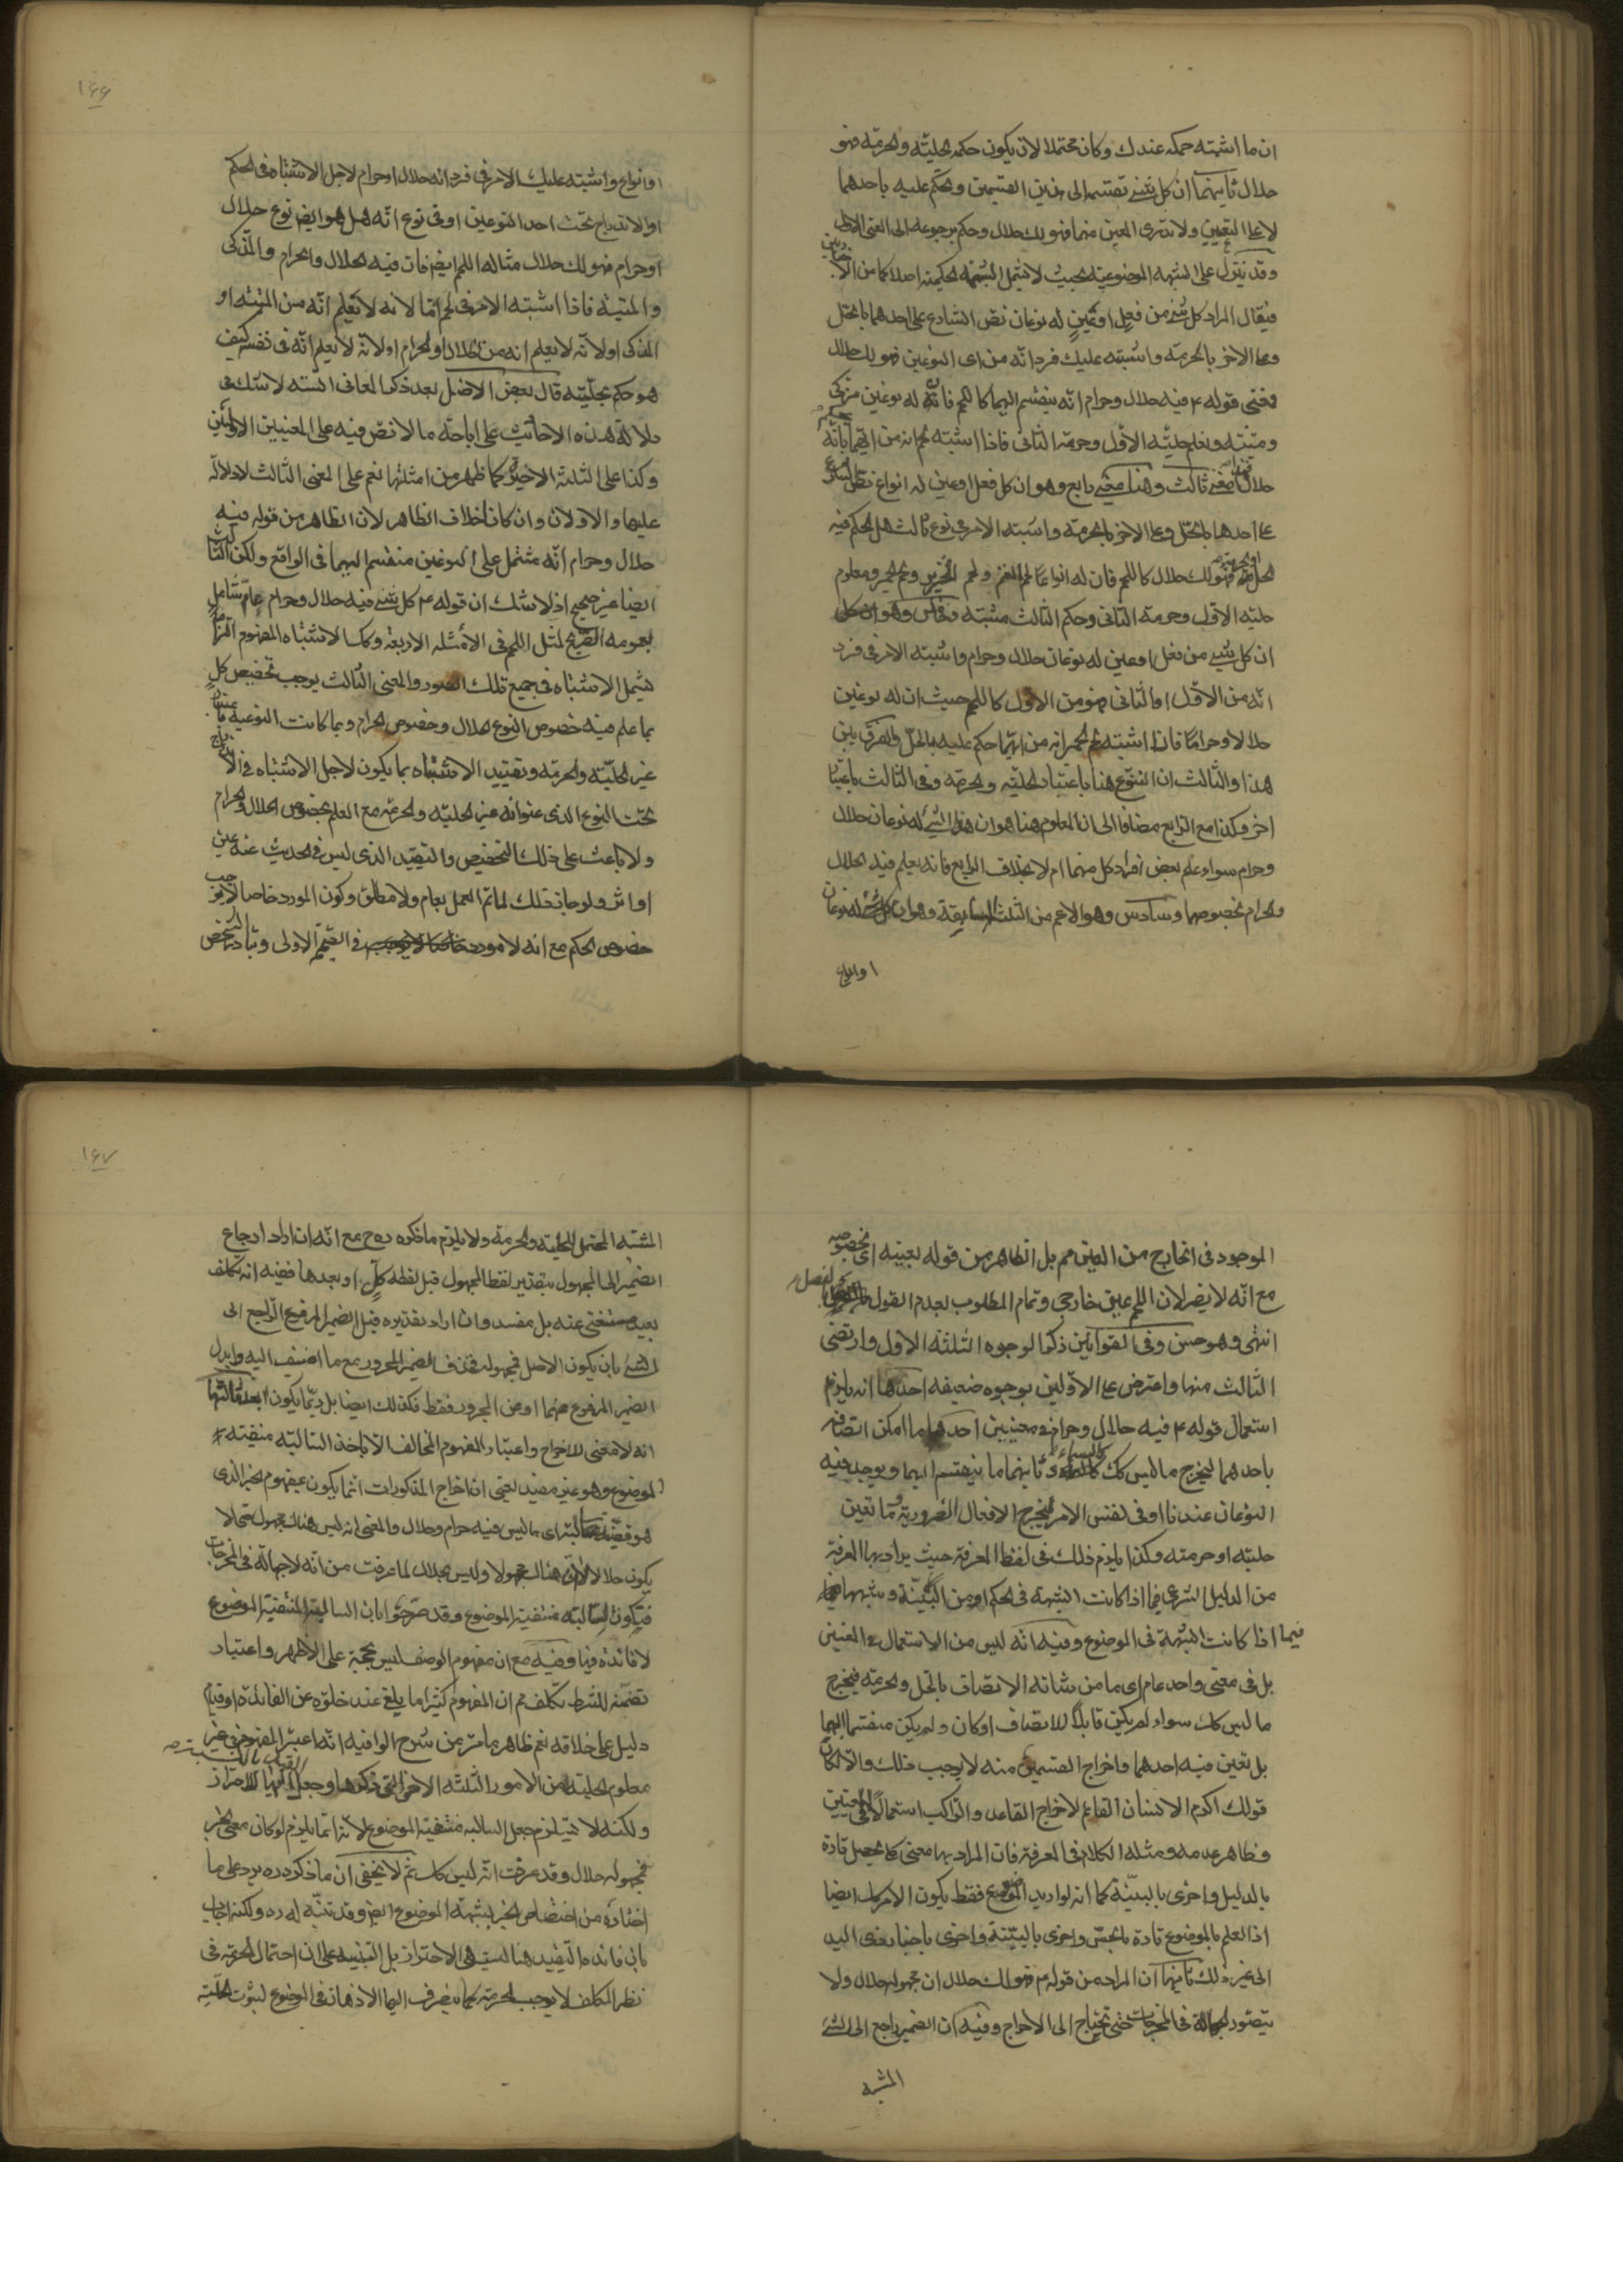 ان ما اشتبه حكمه عندك وكان محتملا لان يكون حكمه الحلية والحرمة فهو
حلال ثانيهما ان كل شئ تقسمه الى هذين القسمين وتحكم عليه باحدهما
لا على التعيين ولا تدرى المعين منهما فهو لك حلال وحكم برجوعه الى المعنى الاول
وقد ينزل على الشبهة الموضوعية بحيث لا يشمل الشبهة الحكمية اصلا كما من الا
فيقال المراد كل شئ من فعل او عين له نوعان نص الشارع على احدهما بالحل
وعلى الاخر بالحرمة واشتبه عليك فرد انه من اى النوعين فهو لك حلال
فمعنى قوله ع فيه حلال وحرام انه ينقسم اليهما كاللحم فانه له نوعين مزكى
وميتة ونعلم حلية الاول وحرمة الثانى فاذا اشتبه لحم انه من ايهما بانه
حلال معنى ثالث وهنا معنى رابع وهو ان كل فعل او عين له انواع نص الشارع
على احدها بالحل وعلى الاخر بالحرمة واشتبه الامر فى نوع ثالث هل الحكم فيه
الحل فهو لك حلال كاللحم فان له انواعا لحم الغنم ولحم الخنزير ولحم الحمير ومعلوم
حلية الاول وحرمة الثانى وحكم الثالث مشتبه وخامس وهو
ان كل شئ من فعل او عين له نوعان حلال وحرام واشتبه الامر فى فرد
انه من الاول او الثانى فهو من الاول كاللحم حيث ان له نوعين
حلالا وحراما فاذا اشتبه لحم الحمير انه من ايهما حكم عليه بالحل والفرق بين
هذا والثالث ان التنوع هنا باعتبار الحلية والحرمة وفى الثالث باعتبار
اخر وكذا مع الرابع مضافا الى ان المعلوم هنا هو ان هذا الشئ له نوعان حلال
وحرام سواء علم بعض افراد كل منهما ام لا بخلاف الرابع فانه يعلم فيه الحلال
والحرام بخصوصهما وسادس وهو الاعم من الثلث السابقة وهو ان كل شئ له نوعان
او انواع
۱۶۶
او انواع واشتبه عليك الامر فى فرد انه حلال او حرام لاجل الاشتباه فى الحكم
او الاندراج تحت احد النوعين او فى نوع انه هل هو ايض نوع حلال
او حرام فهو لك حلال مثاله اللحم ايض فان فيه الحلال والحرام والمذكى
والميتة فاذا اشتبه الامر فى لحم اما لانه لا تعلم انه من الميتة او
المذكى او لانه لا يعلم انه من الحلال او الحرام او لانه لا يعلم انه فى نفسه كيف
هو حكم بحليته قال بعض الافاضل بعد ذكر المعانى الستة لا شك فى
دلالة هذه الاحاديث على اباحة ما لا نص فيه على المعنيين الاولين
وكذا على الثلثة الاخيرة كما ظهر من امثلتها نعم على المعنى الثالث لا دلالة
عليها والاولان وان كانا خلاف الظاهر لان الظاهر من قوله فيه
حلال وحرام انه مشتمل على النوعين منقسم اليهما فى الواقع ولكن الثالث
ايضا غير صحيح اذ لا شك ان قوله ع كل شئ فيه حلال وحرام عام شامل
بعمومه لمثل اللحم فى الامثلة الاربعة وكما الاشتباه المفهوم التزاما
يشمل الاشتباه فى جميع تلك الصور والمعنى الثالث يوجب تخصيص كل
بما علم فيه خصوص النوع الحلال وخصوص الحرام وبما كانت النوعية باعتبار
غير الحلية والحرمة وتقييد الاشتباه بما يكون لاجل الاشتباه فى الاندراج
تحت النوع الذى عنوانه غير الحلية والحرمة مع العلم بخصوص الحلال والحرام
ولا باعث على ذلك التخصيص والتقييد الذى ليس فى الحديث عنه عين
او اثر ولو جاز ذلك لما تم العمل بعام ولا مطلق وكون المورد خاصا لا يوجب
خصوص الحكم مع انه لا مورد فى القسم الاولى وتبادر التشخص
الموجود فى الخارج من العين مم بل الظاهر من قوله بعينه اى بخصوصه
مع انه لا يضر لان اللحم عين خارجى وتمام المطلوب بعدم القول بالفصل
انتهى وهو حسن وفى القوانين ذكر الوجوه الثلثة الاول وارتضى
الثالث منها واعترض على الاولين بوجوه ضعيفة احدها انه يلزم
استعمال قوله ع فيه حلال وحرام فى معنيين احدهما ما امكن اتصافه
باحدهما ليخرج ما ليس كك وثانيهما ما ينقسم اليهما ويوجد فيه
النوعان عندنا او فى نفس الامر ليخرج الافعال الضرورية وما تعين
حليته او حرمته وكذا يلزم ذلك فى لفظ المعرفة حيث يراد بها المعرفة
من الدليل الشرعى فيما اذا كانت الشبهة فى الحكم او من البينة وشبهها
فيما اذا كانت الشبهة فى الموضوع وفيه انه ليس من الاستعمال فى المعنيين
بل فى معنى واحد عام اى ما من شانه الاتصاف بالحل والحرمة فيخرج
ما ليس كك سواء لم يكن قابلا للاتصاف او كان ولم يكن منقسما اليهما
بل تعين فيه احدهما واخراج القسمين منه لا يوجب ذلك والا لكان
قولك اكرم الانسان القائم لاخراج القاعد والراكب استعمالا فى معنيين
وظاهر عدمه ومثله الكلام فى المعرفة فان المراد بها معنى كما يحصل تارة
بالدليل واخرى بالبينة كما انه لو اريد الموضوع فقط يكون الامر كك ايضا
اذ العلم بالموضوع تارة بالحس واخرى بالبينة واخرى باخبار ذى اليد
الى غير ذلك ثانيها ان المراد من قوله ع فهو لك حلال ان مجهوله حلال ولا
يتصور الجهالة فى المخرجات حتى تحتاج الى الاخراج وفيه ان الضمير راجع الى الشئ
المشتبه
۱۶۷
المشتبه المحتمل للحلية والحرمة ولا يلزم ما ذكره ره ح مع انه ان اراد ارجاع
الضمير الى المجهول بتقدير لفظ المجهول قبل لفظه كل او بعدها ففيه انه تكلف
بعيد مستغنى عنه بل مفسد وان اراد تقديره قبل الضمير المرفوع الراجع الى
الشئ بان يكون الاصل فمجهوله فحذف الضمير المجرور مع ما اضيف اليه وابدل
الضمير المرفوع منهما او من المجرور فقط فكذلك ايضا بل ربما يكون ابعد ثالثها
انه لا معنى للاخراج واعتبار المفهوم المخالف الا باخذ السالبة منتفية
الموضوع وهو غير مفيد يعنى ان اخراج المذكورات انما يكون بمفهوم الخبر الذى
هو قضية سالبة اى ما ليس فيه حرام وحلال والمعنى انه ليس هناك مجهول حتى لا
يكون حلالا لا ان هناك مجهولا وليس بحلال لما عرفت من انه لا جهالة فى المخرجات
فتكون السالبة منتفية الموضوع وقد صرحوا بان السالبة المنتفية الموضوع
لا فائدة فيها وفيه مع ان مفهوم الوصف ليس بحجة على الاظهر واعتبار
تضمنه للشرط تكلف مم ان المفهوم كثيرا ما يلغى عند خلوه عن الفائدة او قيام
دليل على خلافه نعم ظاهر ما مر من شرح الوافية انه اعتبر المفهوم فى غير
معلوم الحلية من الامور الثلثة الاخر التى ذكرها وجعل للاحتراز
ولكنه لا يستلزم جعل السالبة منتفية الموضوع لانه انما يلزم لو كان معنى الخبر
فمجهوله حلال وقد عرفت انه ليس كك ثم لا يخفى ان ما ذكره ره يرد على ما
اختاره من اختصاص الخبر بشبهة الموضوع ايض وقد تنبه له ره ولكنه اجاب
بان فائدة التقييد هنا ليست هى الاحتراز بل التنبيه على ان احتمال الحرمة فى
نظر المكلف لا يوجب الحرمة كما ينصرف اليها الاذهان فى الموضوع لثبوت الحلية